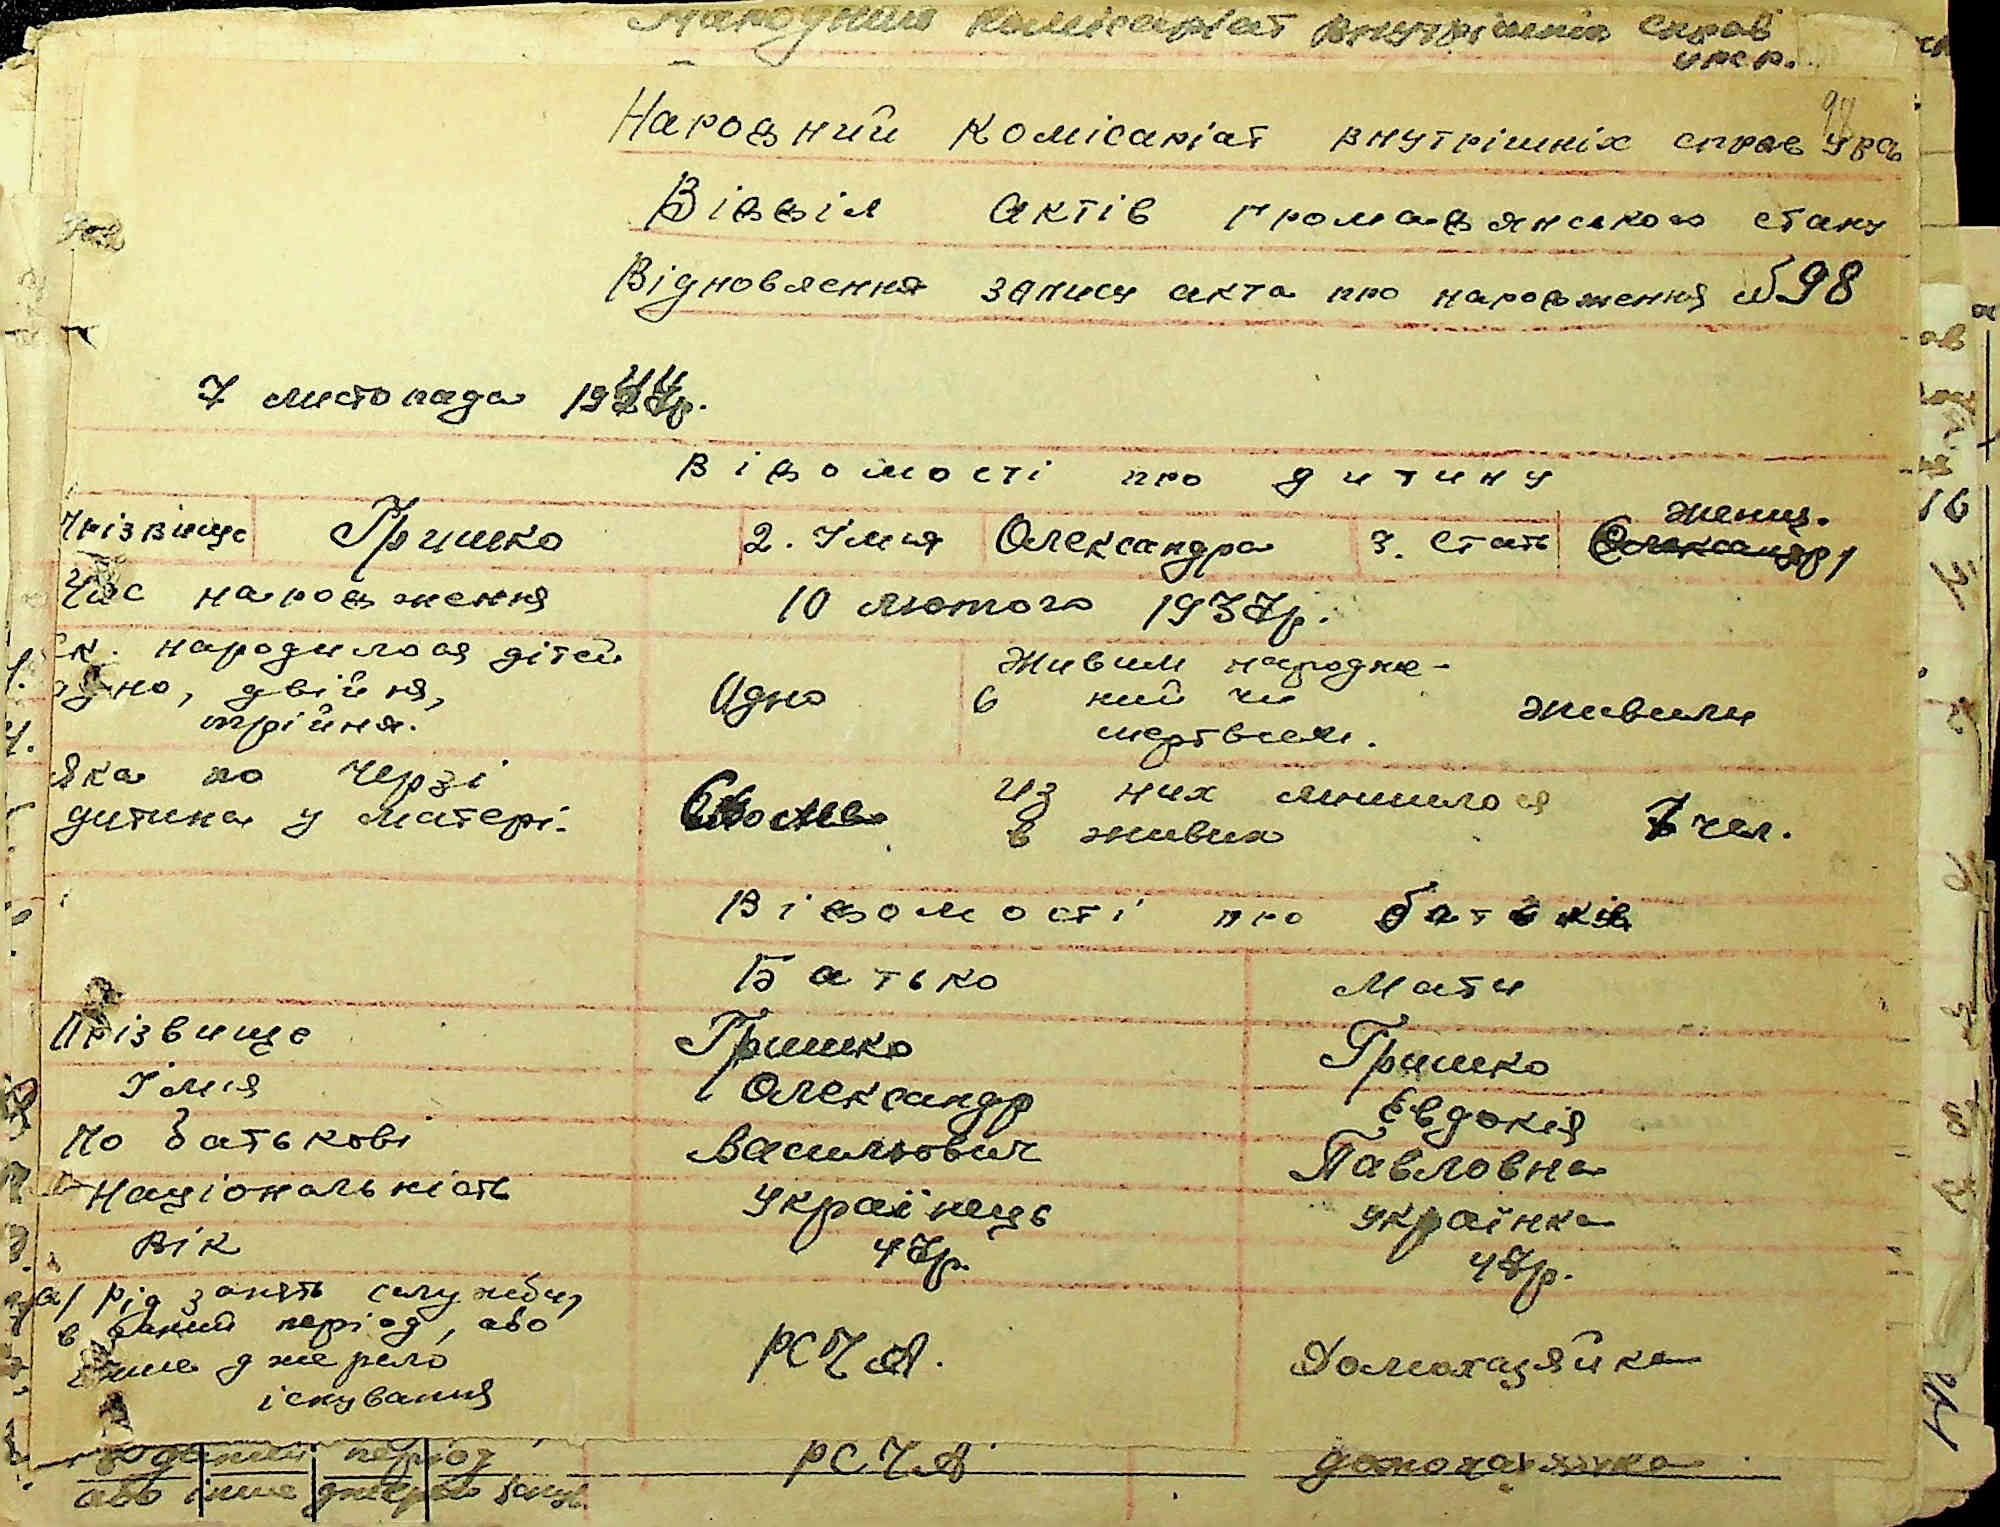 Народний комісаріат внутрішніх справ
УРСР.
98
Народний комісаріат внутрішніх справ УРСР
Відділ актів громадянського стану
Відновлення запису акта про народження №98
7 листопада 1944р.
Відомості про дитину
Прізвище Гришко 2. Імия Олександра 3. Стать женщ.
Час народження 10 лютого 1937р.
Ск. народилося дітей
одно, двійня,
трійня.
Одно
6 Живим народже-
ний чи
мертвим.
живим
Яка по черзі
дитина у матері.
Из них лишилося
в живих
7 чел.
Відомості про батьків
Батько Мати
Прізвище Гришко Гришко
Імия Олександр Евдокія
По батькові Васильович Павловна
Національність Українець Українка
Вік 47р. 47р.
а/ рід занять службу,
в даний період, або
інше джерело
існування
РСЧА. Домохазяйка
в даний період РСЧА домохазяйка
або інше джерело існув.